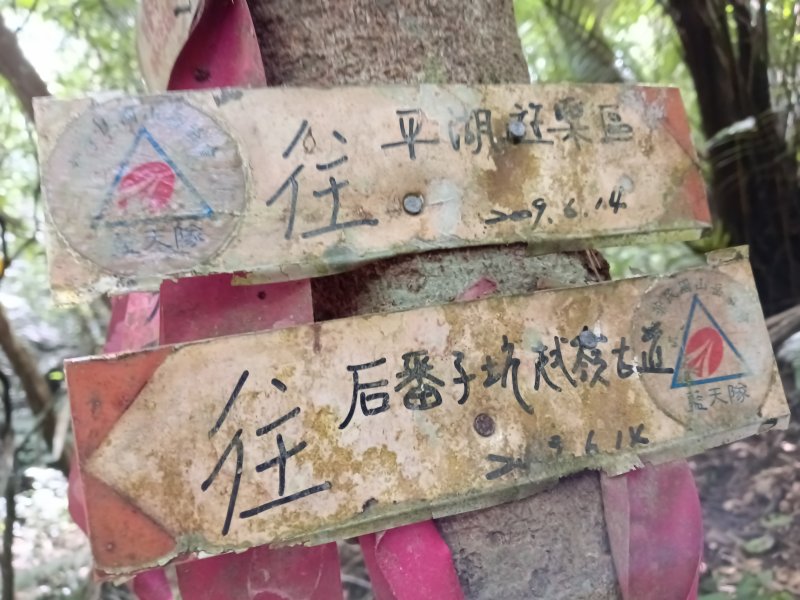 往 平湖遊樂區
2009.6.14
藍天隊
往 后番子坑越嶺古道
6.14
藍天隊